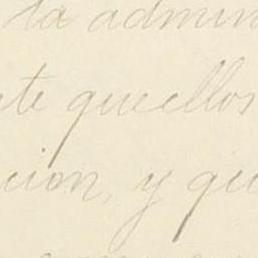 la admin
te que ellos
cion, y que